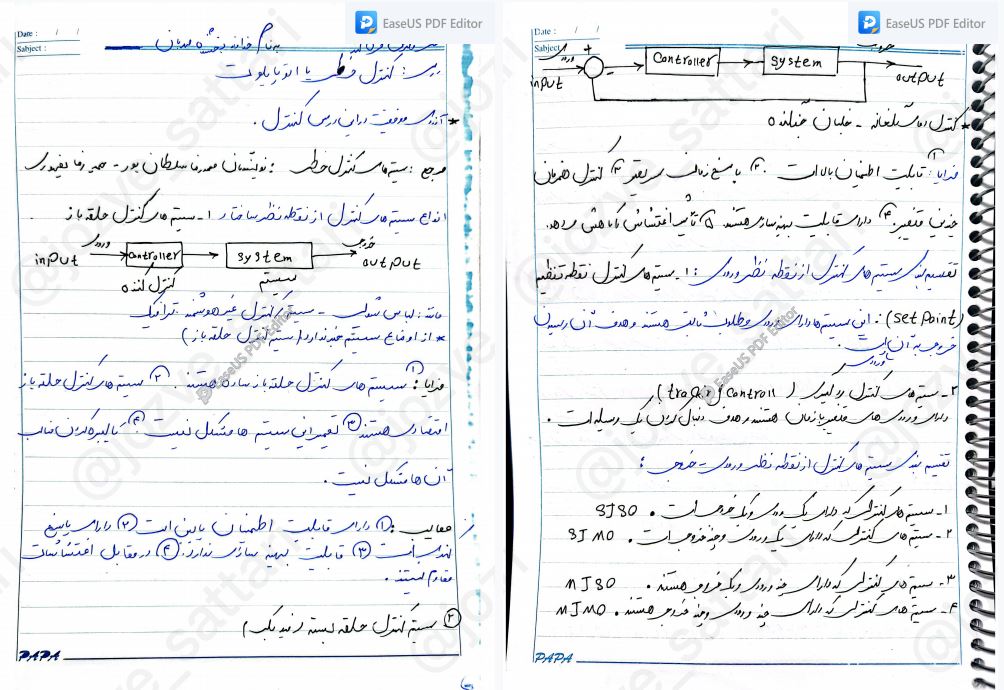 Date : / /
Subject :
بنام خدای بخشنده مهربان
درس : کنترل خطی با اتوپایلوت
* آرزوی موفقیت در این درس کنترل .
مرجع : سیستم‌های کنترل خطی : نویسندگان محمدرضا سلطان پور - حمیدرضا تیموری
انواع سیستم های کنترل از نقطه نظر ساختار ۱- سیستم های کنترل حلقه باز .
ورودی خروجی
input Controller system output
کنترل کننده سیستم
مانند: لباس شوئی - سیستم کنترل غیر هوشمند ترافیک
* از اوضاع سیستم خبر ندارد (سیستم کنترل حلقه باز)
مزایا : ① سیستم های کنترل حلقه باز ساده هستند . ② سیستم های کنترل حلقه باز
اقتصادی هستند ③ تعمیر این سیستم ها مشکل نیست ④ کالیبره کردن
آن ها مشکل نیست .
معایب : ① دارای قابلیت اطمینان پایین است ② دارای پاسخ
کند است ③ قابلیت بهینه سازی ندارد ④ در مقابل اغتشاشات
مقاوم نیستند .
② سیستم کنترل حلقه بسته (فیدبک)
PAPA
Date : / /
Subject :
ورودی + خروجی
input Controller system output
* کنترل دمای آشپزخانه - خلبان
مزایا : ① قابلیت اطمینان بالا است . ۲ پاسخ زمانی سریعتر ۳ کنترل همزمان
چندین متغیر . ۴ دارای قابلیت بهینه سازی هستند ۵ تأثیر اغتشاش را کاهش می دهد.
تقسیم بندی سیستم های کنترل از نقطه نظر ورودی : ۱- سیستم های کنترل نقطه تنظیم
(set Point) : این سیستم ها دارای ورودی مطلوب ثابت هستند و هدف آن رسیدن
خروجی به آن است .
۲- سیستم های کنترل ردیابی (tracking Controll)
دارای ورودی های متغیر با زمان هستند و هدف دنبال کردن یک وسیله است .
تقسیم بندی سیستم های کنترل از نقطه نظر ورودی - خروجی :
۱- سیستم های کنترلی که دارای یک ورودی و یک خروجی است . SISO
۲- سیستم های کنترلی که دارای یک ورودی و چند خروجی است . SIMO
۳- سیستم های کنترلی که دارای چند ورودی و یک خروجی هستند . MISO
۴- سیستم های کنترلی که دارای چند ورودی و چند خروجی هستند . MIMO
PAPA
EaseUS PDF Editor
EaseUS PDF Editor
EaseUS PDF Editor
EaseUS PDF Editor
@jozve_sattari